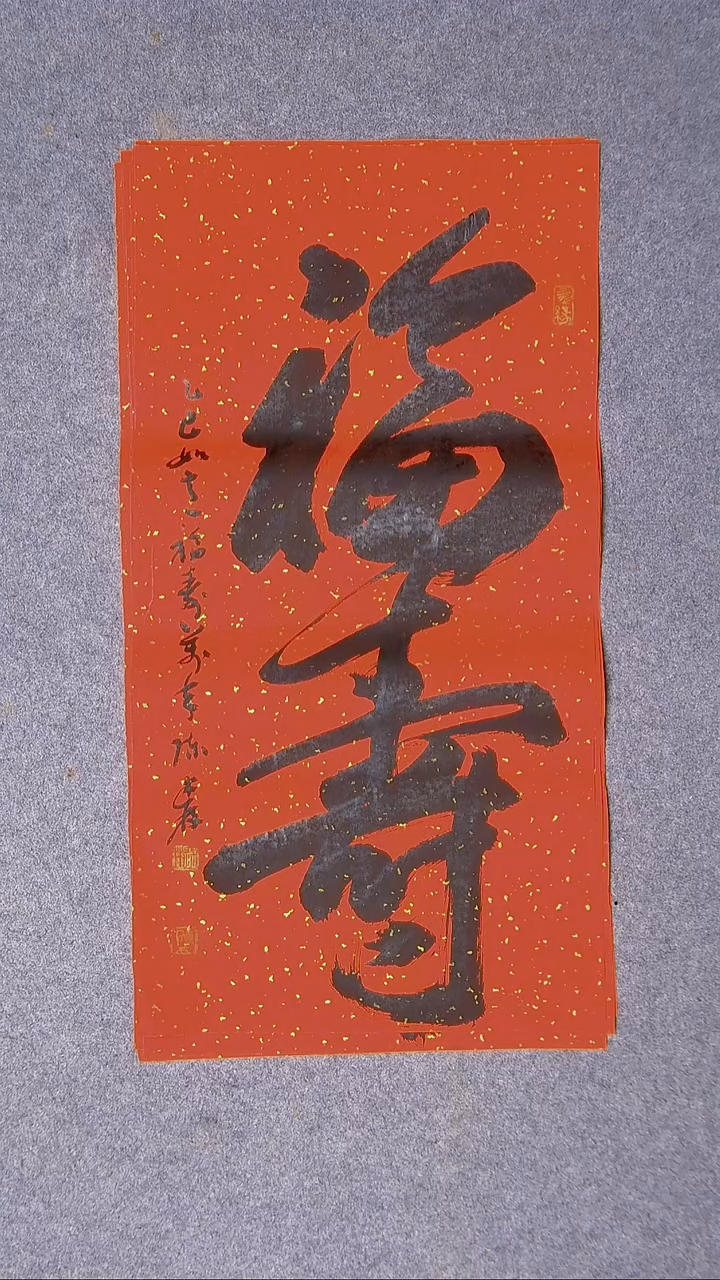 福壽
乙巳如意福壽萬年陈